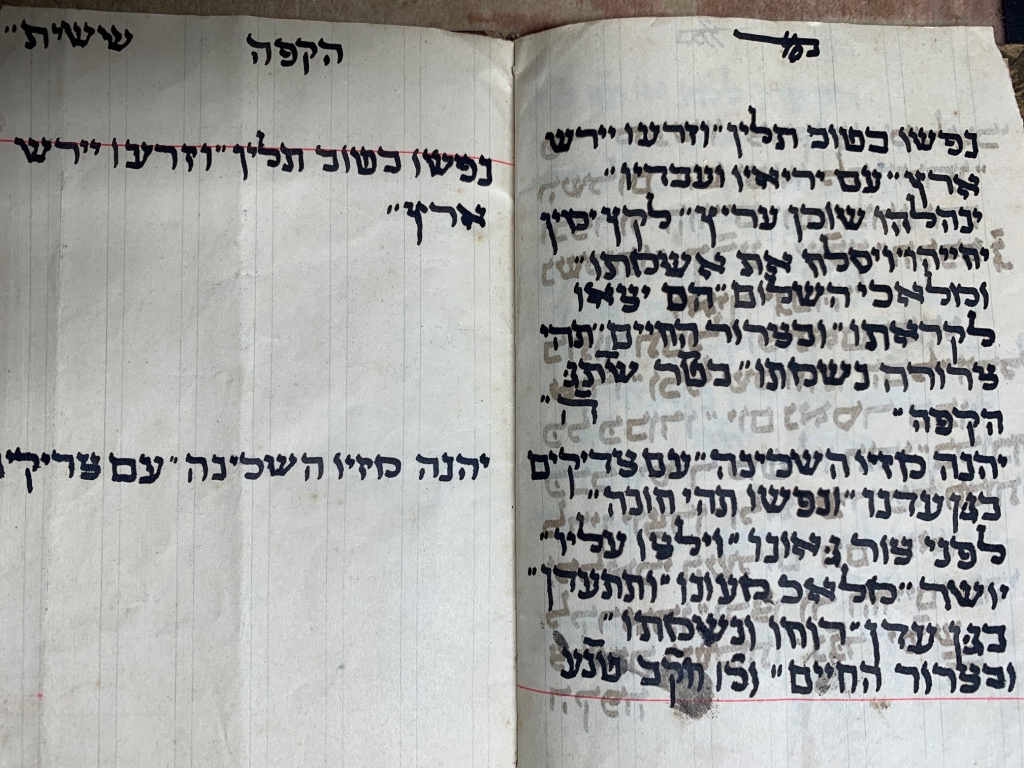 נפשו בטוב תלין״ וזרעו יירש
ארץ״ עם יריאיו ועבדיו״
ינהלהו שוכן עריץ״ לקץ ימין
יחייהו ויסלח את אשמתו״
ומלאכי השלום״ הם יצאו
לקראתו״ ובצרור החיים״ תהי
צרורה נשמתו״ בטר שתג
הקפה״ ה״
יהנה מזיו השכינה״ עם צדיקים
בגן עדנו״ ונפשו תהי חונה״
לפני צור גאונו״ וילצו עליו״
יושר״ מלאכ מעונו״ ותתעדן״
בגן עדן״ רוחו ונשמתו״
ובצרור החיים״ וכו חקב טנע
הקפה ששית״
נפשו בטוב תלין״ וזרעו יירש
ארץ״
יהנה מזיו השכינה״ עם צדיקים